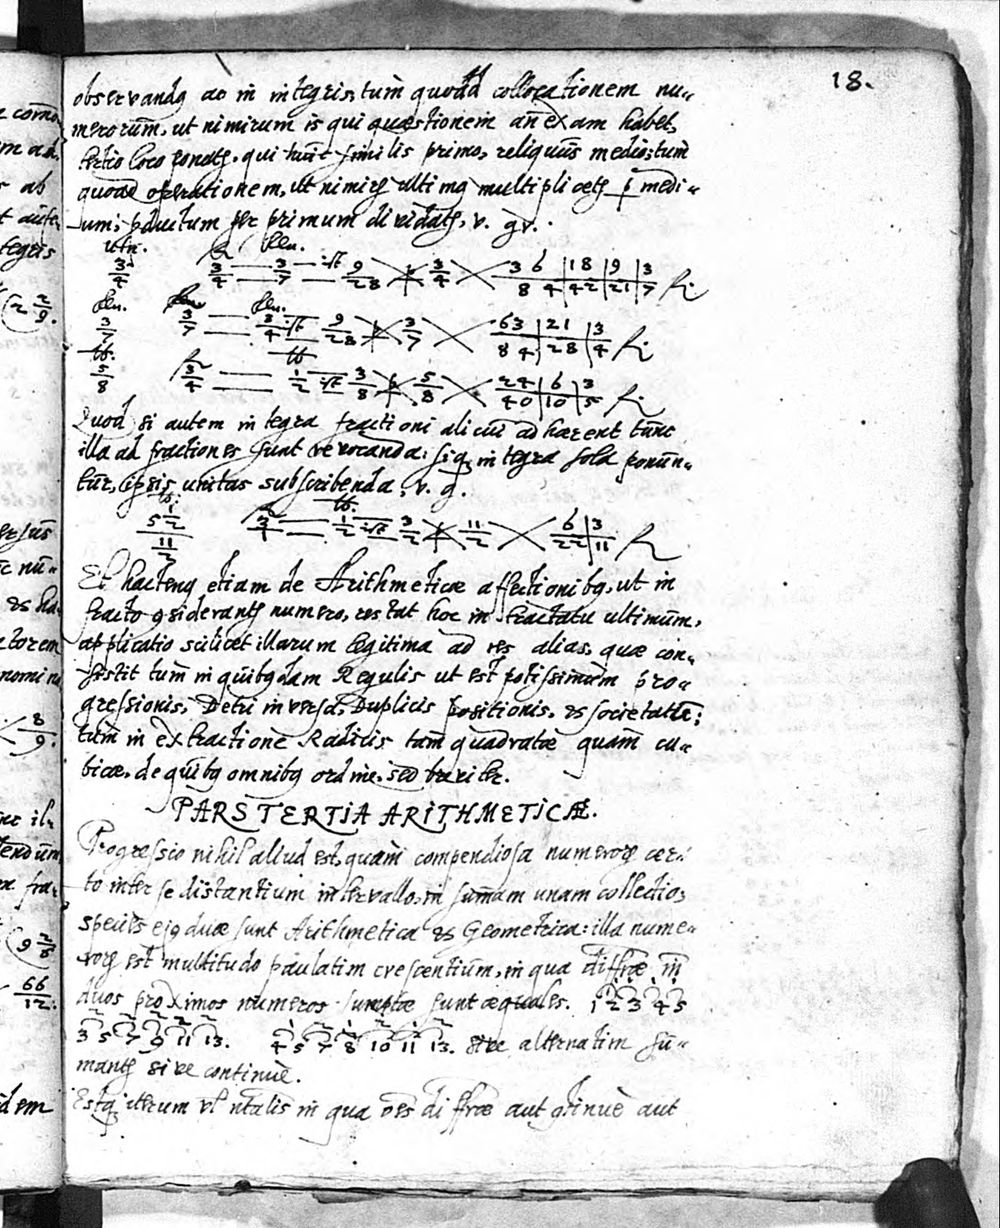 18.
observandq ac in integris, tùm quoad collocationem nu-
merorum, ut nimirum is qui quæstionem an̄exam habet,
tertio loco ponatꝭ, qui huic similis primo, reliquus medio; tùm
quoad operationem, ut nimirꝭ ultimq multiplicetꝭ ꝑ medi-
um; pductum per primum dividatꝭ, v. gr.
3/4 3/4 3/7 9/28 3/4 3 6 | 18 | 9 | 3
8 4 | 42 | 21 | 7
3/7 3/7 3/4 9/28 3/7 63 | 21 | 3
84 | 28 | 4
5/8 3/4 1/2 3/8 5/8 24 | 6 | 3
40 | 10 | 5
Quod si autem integra fractioni alicui adhærent tunc
illa ad fractiones sunt revocanda: siq integra sola ponun-
tur, ipsis unitas subscribenda, v. g.
5 1/2
11/2 3/4 1/2 3/2 11/2 6 | 3
22 | 11
Et hactenq etiam de Arithmeticæ affectionibq, ut in
fracto ɔsiderantꝭ numero, restat hoc in tractatu ultimum,
applicatio scilicet illarum legitima ad res alias, quæ con-
sistit tùm in quibqdam Regulis ut est potissimùm pro-
gressionis, Detri inversæ, Duplicis positionis, & societatis;
tùm in extractione Radicis tàm quadratæ quàm cu-
bicæ, de quibq omnibq ordine, sed breviter.
PARS TERTIA ARITHMETICÆ.
Progressio nihil aliud est, quàm compendiosa numerorꝭ cer-
to inter se distantium intervallo, in sum̄am unam collectio;
species ejq duæ sunt Arithmetica & Geometrica: illa nume-
rorꝭ est multitudo paulatim crescentium, in qua diffr̄æ in
duos proximos numeros sumptæ sunt æquales. 1 2 3 4 5
3 5 7 9 11 13. 4 5 7 8 10 11 13. sive alternatim su-
mantꝭ sive continuè.
Estq iterum vl ntalis in qua oēs diffr̄æ aut ɔtinuè aut